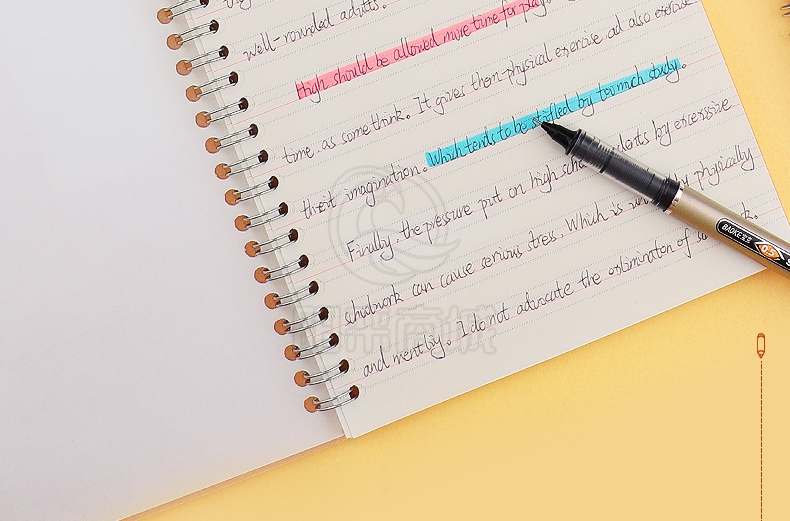 well-rounded adults.
High should be allowed more time for play
time, as some think. It gives them physical exercise ad also exercise
theit imagination. Which tends to be stifled by too much study.
Finally, the pressure put on high by excessive
can cause serious stress, Which is physically
and mently. I do not advocate the of
BAOKE宝克
0.5